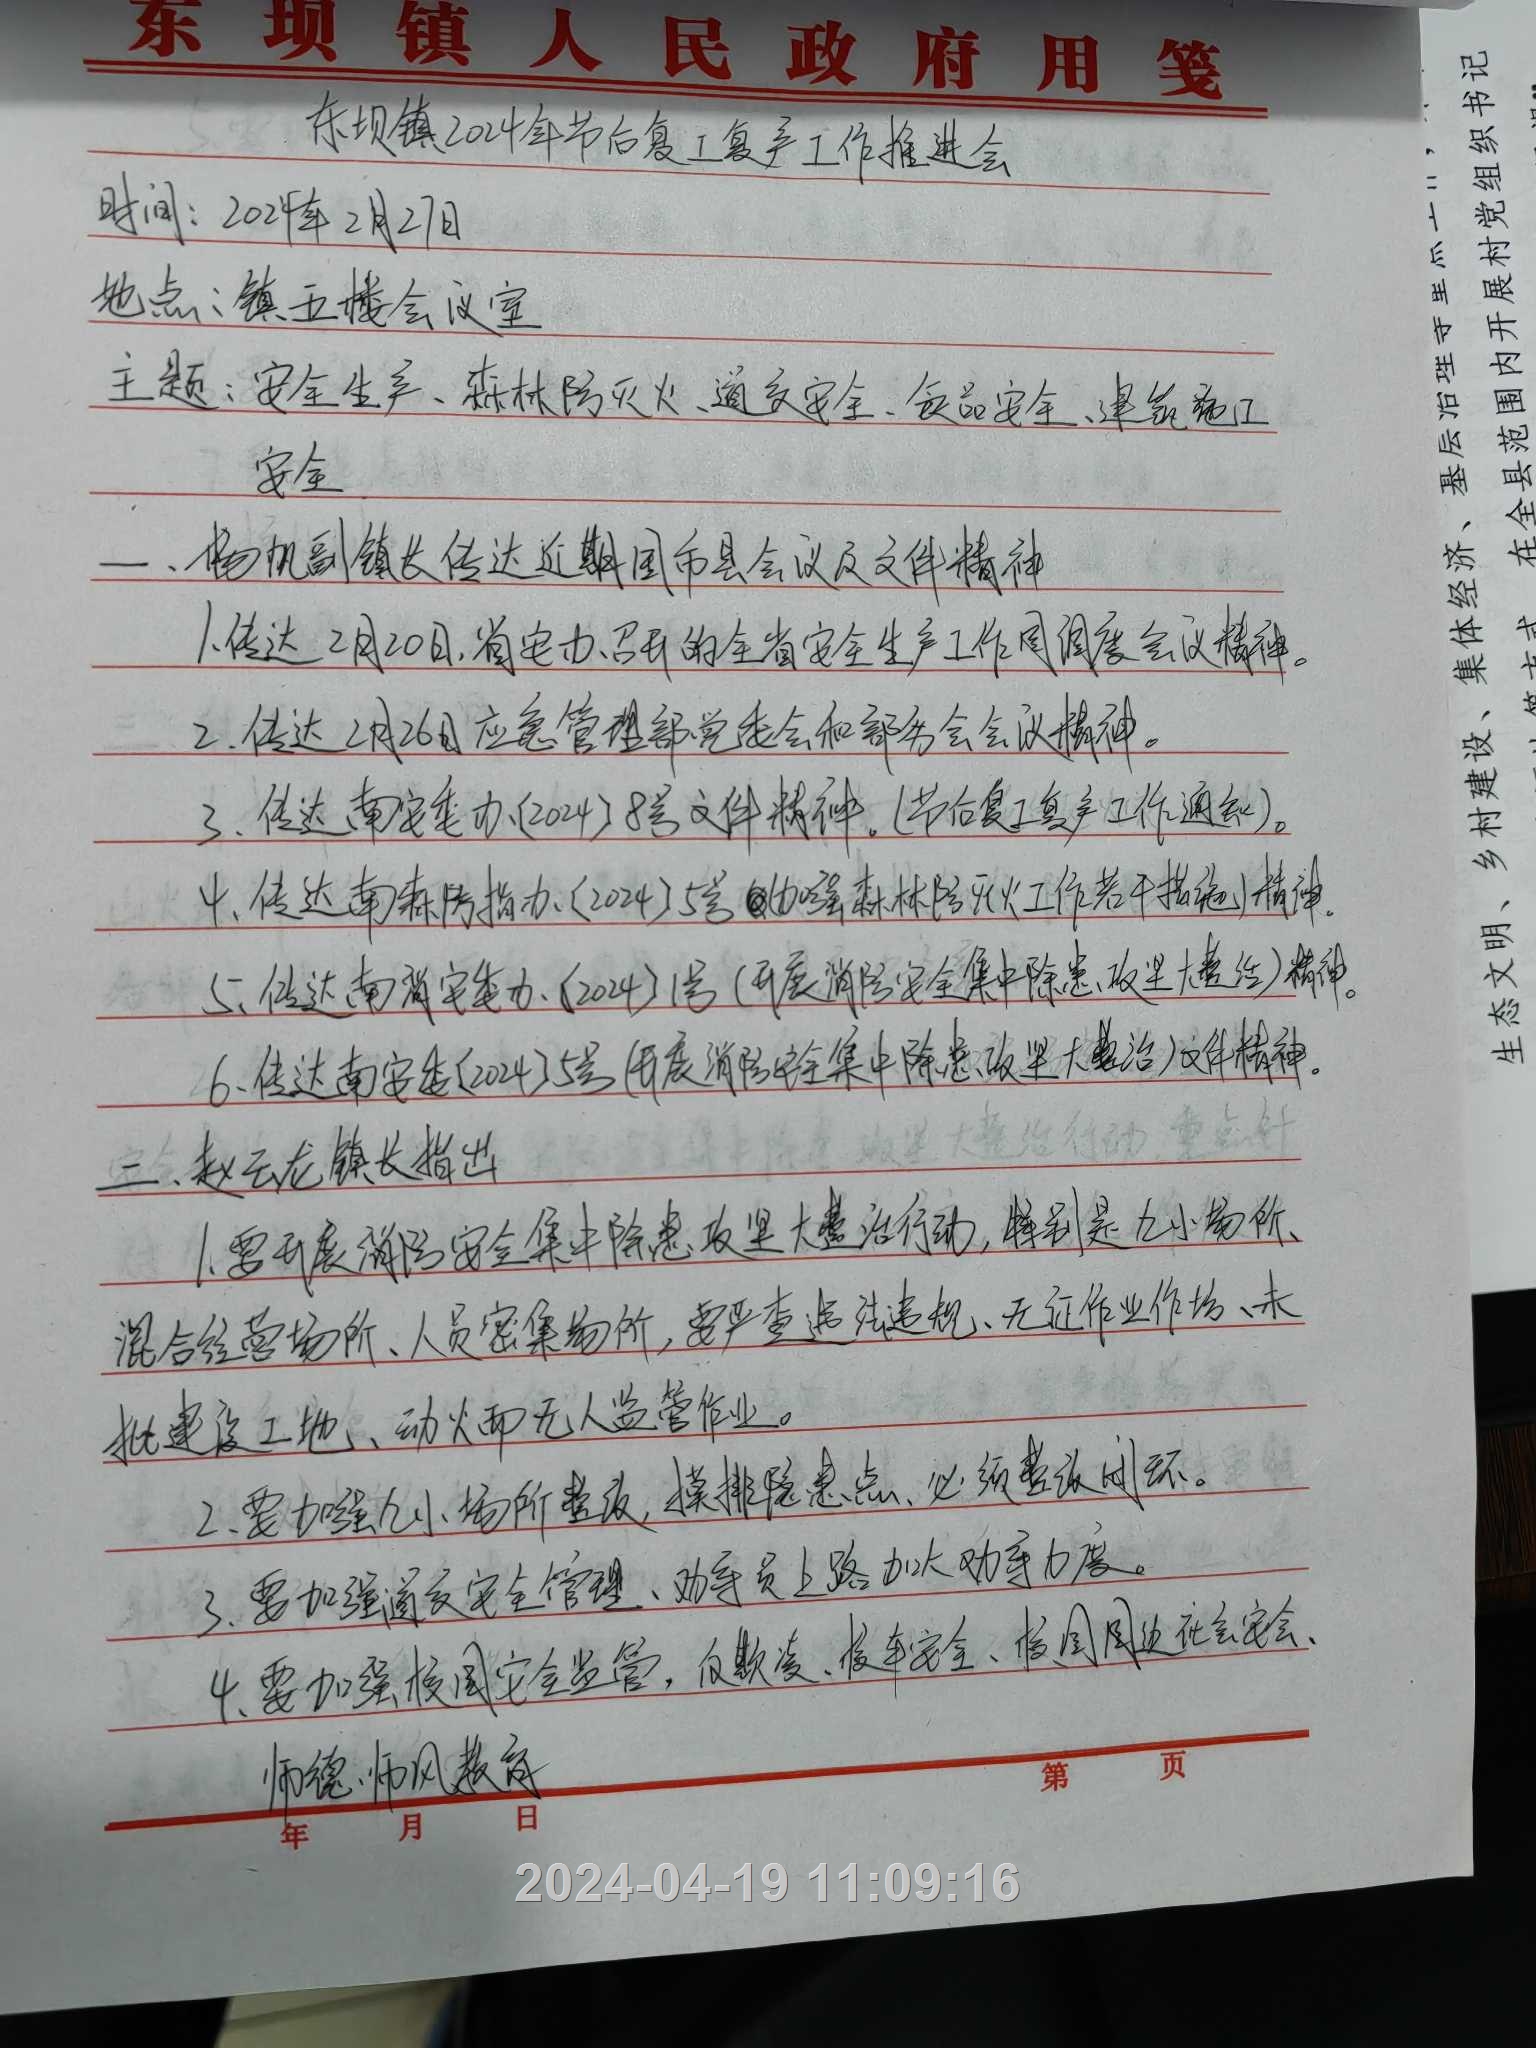 东坝镇人民政府用笺
东坝镇2024年节后复工复产工作推进会
时间：2024年2月27日
地点：镇五楼会议室
主题：安全生产、森林防灭火、道交安全、食品安全、建筑施工
安全
一、杨帆副镇长传达近期国市县会议及文件精神
1.传达2月20日，省安办、召开的全省安全生产工作周调度会议精神。
2.传达2月26日应急管理部党委会和部务会会议精神。
3、传达南安委办〔2024〕8号文件精神。(节后复工复产工作通知)。
4、传达南森防指办〔2024〕5号(加强森林防灭火工作若干措施)精神。
5、传达南消安委办〔2024〕1号(开展消防安全集中除患攻坚大整治)精神。
6、传达南安委〔2024〕5号(开展消防安全集中除患攻坚大整治)文件精神。
二、赵云龙镇长指出
1.要开展消防安全集中除患攻坚大整治行动，特别是九小场所、
混合经营场所、人员密集场所，要严查违法违规、无证作业作坊、未
批建设工地、动火而无人监管作业。
2、要加强九小场所整改，摸排隐患点、必须整改闭环。
3、要加强道交安全管理、劝导员上路加大劝导力度。
4、要加强校园安全监管，反欺凌、校车安全、校园周边社会安全、
师德师风教育
年 月 日 第 页
2024-04-19 11:09:16
生态文明、乡村建设、集体经济、基层治理
在全县范围内开展村党组织书记